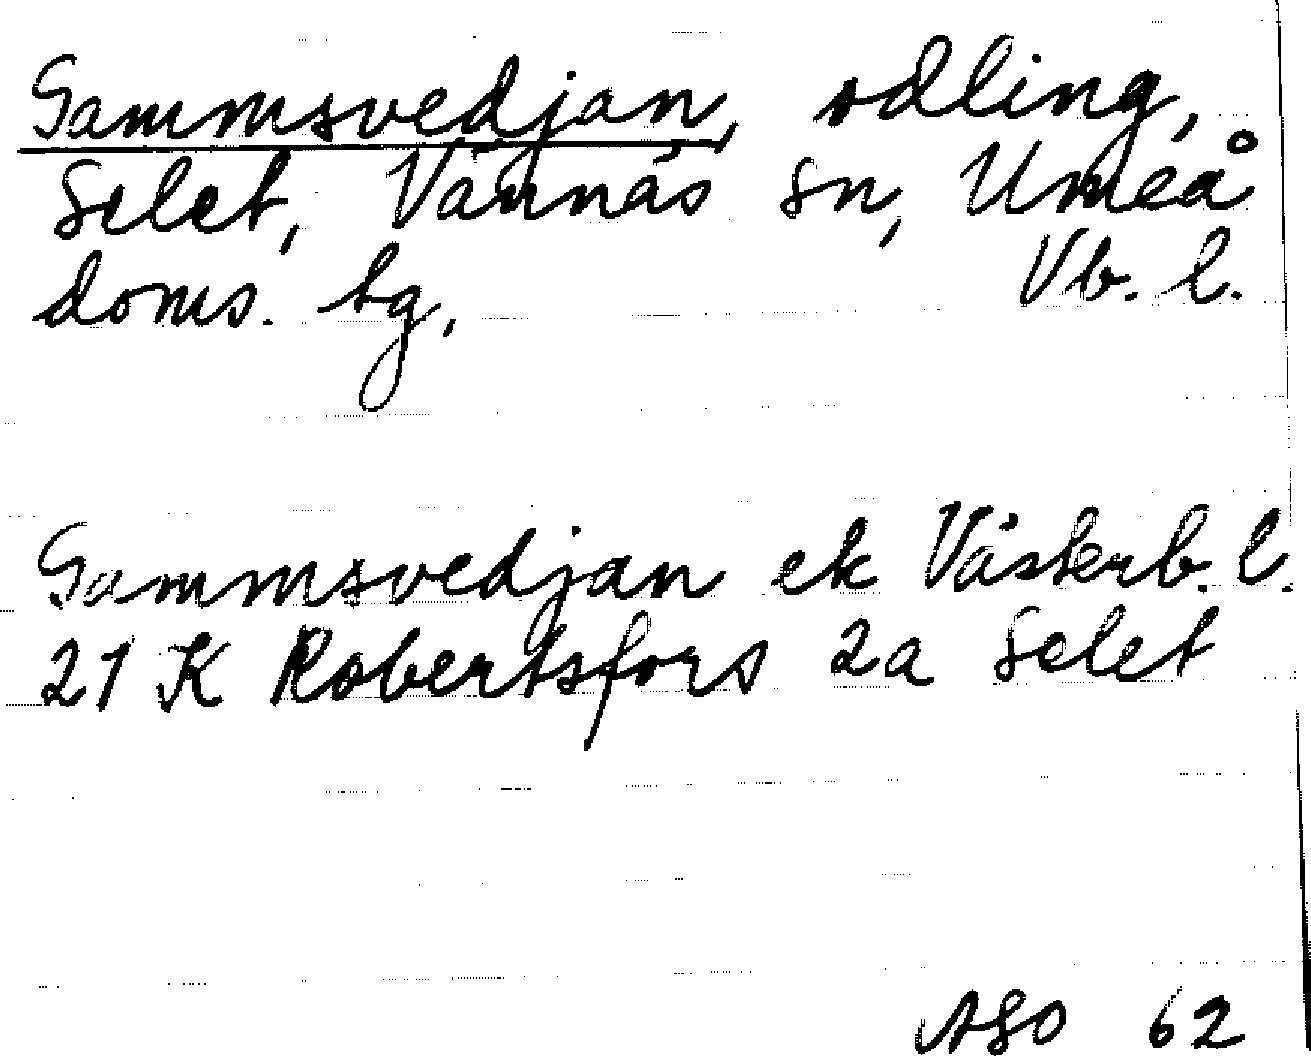 Gammsvedjan, odling,
Selet, Vännäs sn, Umeå
doms. tg, Vb. l.
Gammsvedjan ek Västerb. l.
21 K Robertsfors 2a Selet
ASO 62